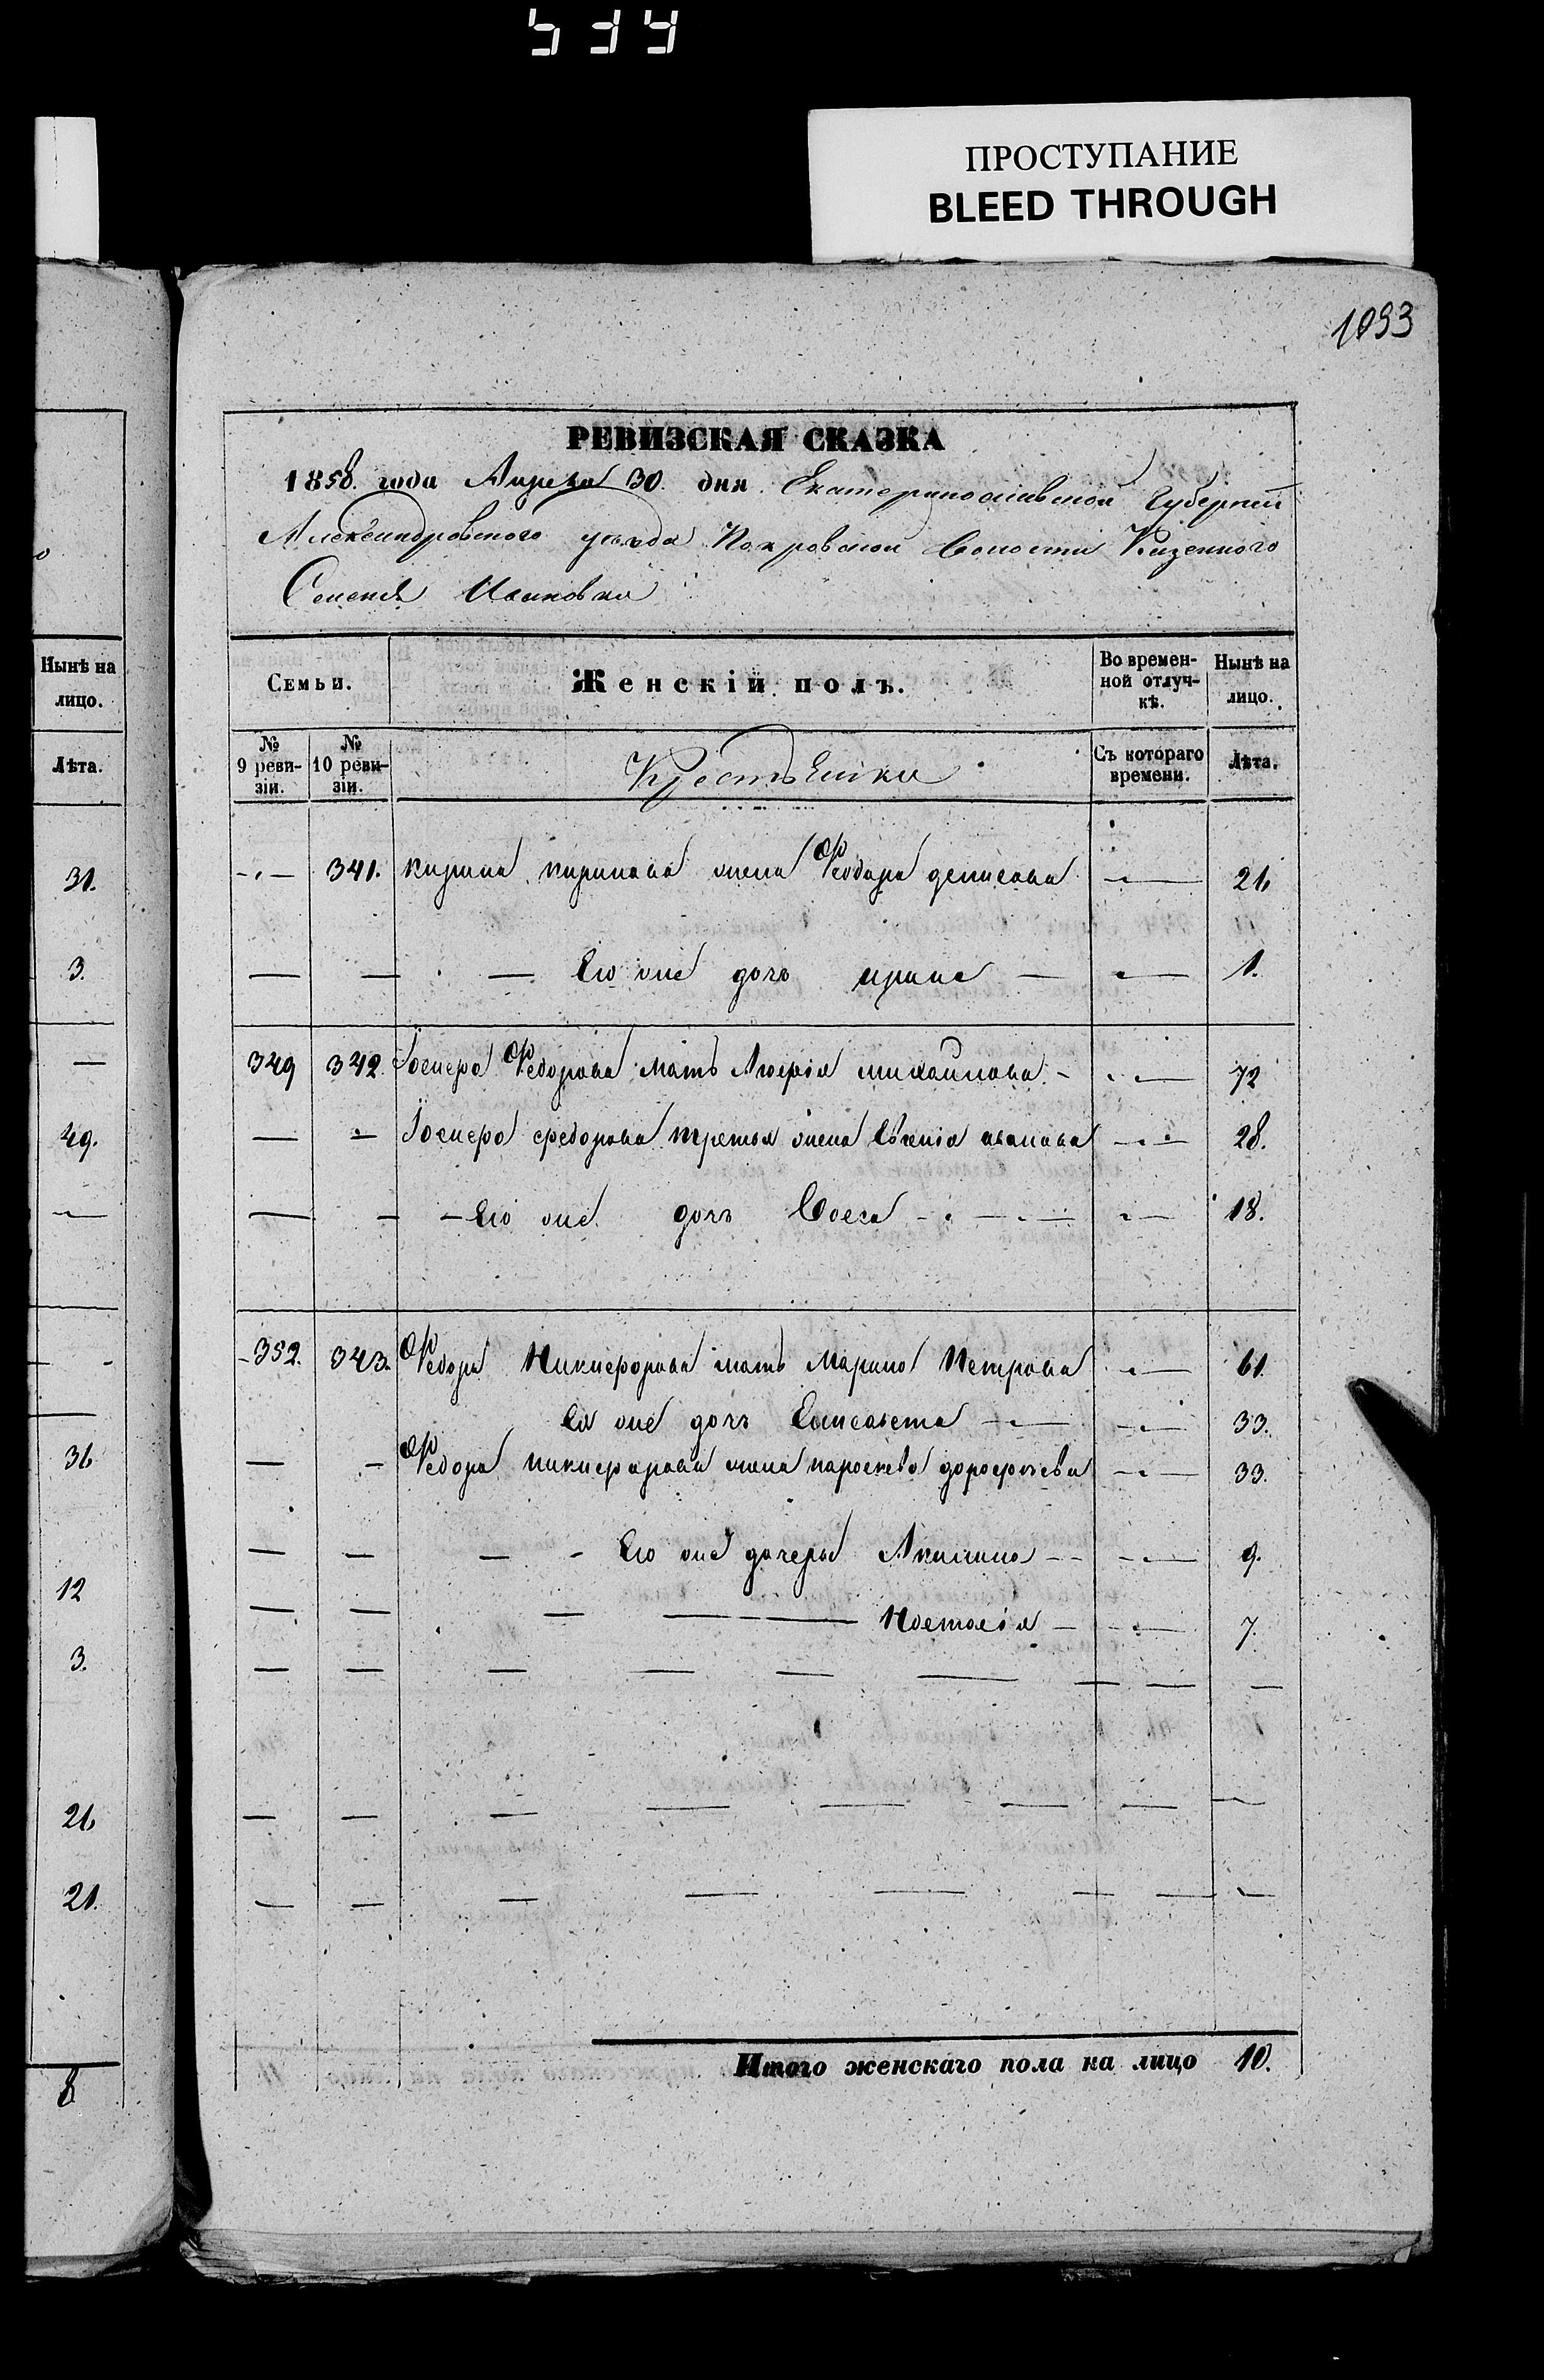 ПРОСТУПАНИЕ
BLEED THROUGH
1093
РЕВИЗСКАЯ СКАЗКА
1858. года Апреля 30. дня Екатеринославской Губернии
Александровского уезда Покровской Волости Казенного
Селения
Семьи.
Женскій полъ.
Во времен-
ной отлуч-
кѣ.
Нынѣ на
лицо.
№
9 реви-
зіи.
№
10 реви-
зіи.
Крестьянки
Съ котораго
времени.
Лѣта.
341. жена Феодора денисова 21
Его же дочь ирина 1.
349 342. Іосифа Федорова мать михаилова 72
Іосифа федорова третья жена Евгенія иванова 28.
Его же дочь 18.
352. 343. Федора Никифорова мать Марина Петрова 61
Ея же дочь Елисавета 33.
Федора никифорова жена дорофеева 33.
Его же дочери Акилина 9.
Настасія 7.
Итого женскаго пола на лицо 10.
Нынѣ на
лицо.
Лѣта.
31.
3.
49.
36
12
3.
21
21.
8